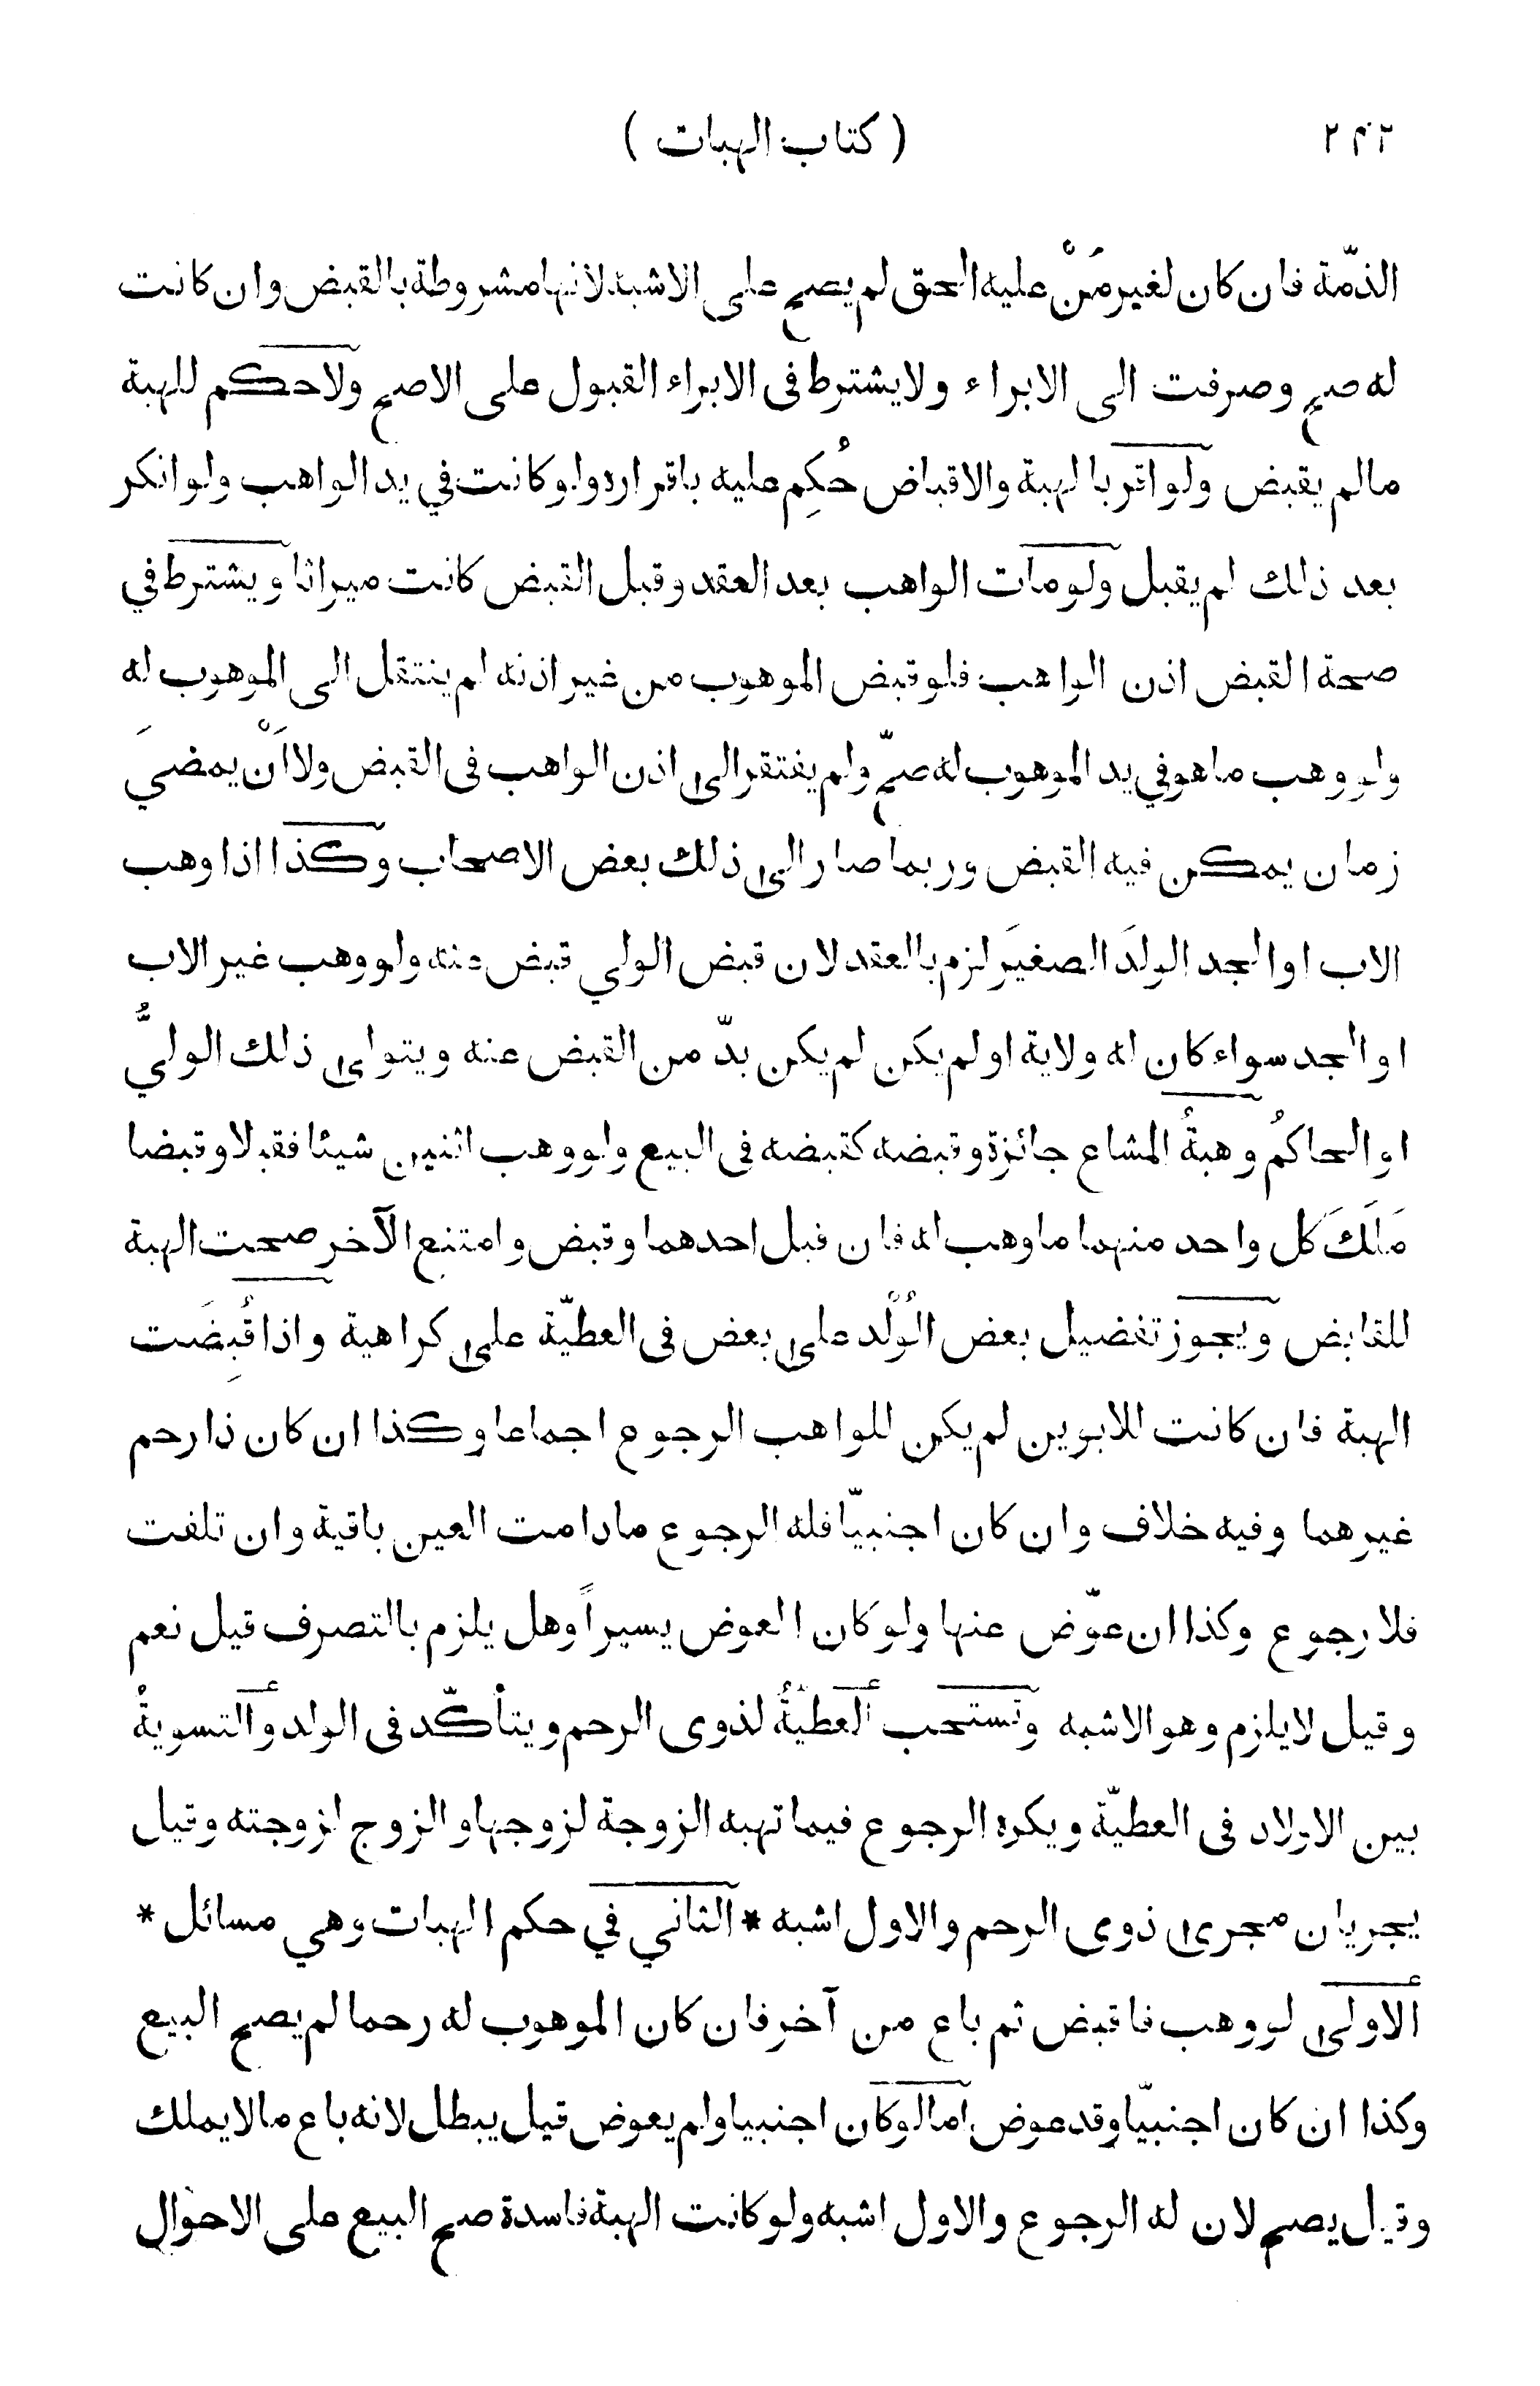 ٢٤٢ ( كتاب الهبات )
الذمّة فان كان لغير مَنْ عليه الحق لم يصح على الاشبه لانها مشروطة بالقبض وان كانت
له صح وصرفت الى الابراء ولا يشترط فى الابراء القبول على الاصح ولاحكم للهبة
مالم يقبض ولو اقر بالهبة والاقباض حُكِم عليه باقراره ولو كانت في يد الواهب ولو انكر
بعد ذلك لم يقبل ولومات الواهب بعد العقد وقبل القبض كانت ميراثا ويشترط في
صحة القبض اذن الواهب فلو قبض الموهوب من غير اذنه لم ينتقل الى الموهوب له
ولو وهب ما هو في يد الموهوب له صحّ ولم يفتقر الى اذن الواهب فى القبض ولا اَنْ يمضيَ
زمان يمكن فيه القبض وربما صار الى ذلك بعض الاصحاب وكذا اذا وهب
الاب او الجد الولدَ الصغيَر لزم بالعقد لان قبض الولي قبض عنه ولو وهب غير الاب
او الجد سواء كان له ولاية او لم يكن لم يكن بدّ من القبض عنه ويتولى ذلك الوليُّ
او الحاكمُ وهبةُ المشاع جائزة وقبضه كقبضه فى البيع ولو وهب اثنين شيئا فقبلا وقبضا
مَلَكَ كل واحد منهما ما وهب له فان قبل احدهما وقبض وامتنع الآخر صحت الهبة
للقابض ويجوز تفضيل بعض الُوُلْد على بعض فى العطيّة على كراهية واذا قُبِضَت
الهبة فان كانت للابوين لم يكن للواهب الرجوع اجماعا وكذا ان كان ذا رحم
غيرهما وفيه خلاف وان كان اجنبيّا فله الرجوع مادامت العين باقية وان تلفت
فلا رجوع وكذا ان عوّض عنها ولو كان العوض يسيراً وهل يلزم بالتصرف قيل نعم
وقيل لايلزم وهو الاشبه وتستحب العطيّةُ لذوى الرحم ويتأكّد فى الولد والتسويةُ
بين الاولاد فى العطيّة ويكره الرجوع فيما تهبه الزوجة لزوجها والزوج لزوجته وقيل
يجريان مجرى ذوى الرحم والاول اشبه * الثاني في حكم الهبات وهي مسائل *
الاولى لو وهب فاقبض ثم باع من آخر فان كان الموهوب له رحما لم يصح البيع
وكذا ان كان اجنبيّا وقد عوض اما لو كان اجنبيا ولم يعوض قيل يبطل لانه باع مالا يملك
وقيل يصح لان له الرجوع والاول اشبه ولو كانت الهبة فاسدة صح البيع على الاحوال